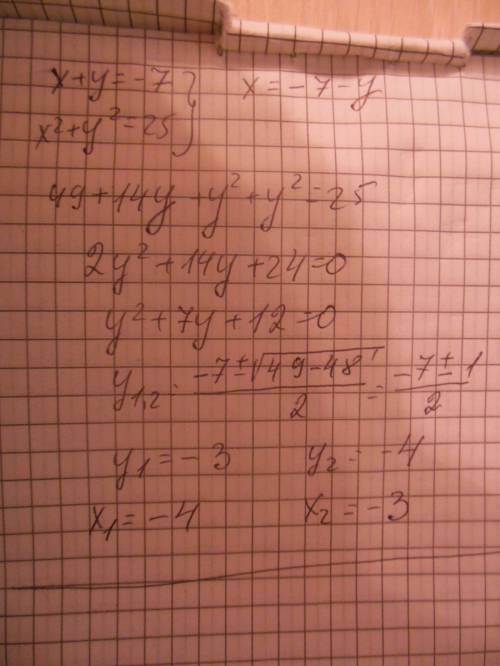 x+y=-7 } x=-7-y
x²+y²=25
49+14y+y²+y²=25
2y²+14y+24=0
y²+7y+12=0
y₁,₂=(-7±√(49-48))/2=(-7±1)/2
y₁=-3 y₂=-4
x₁=-4 x₂=-3